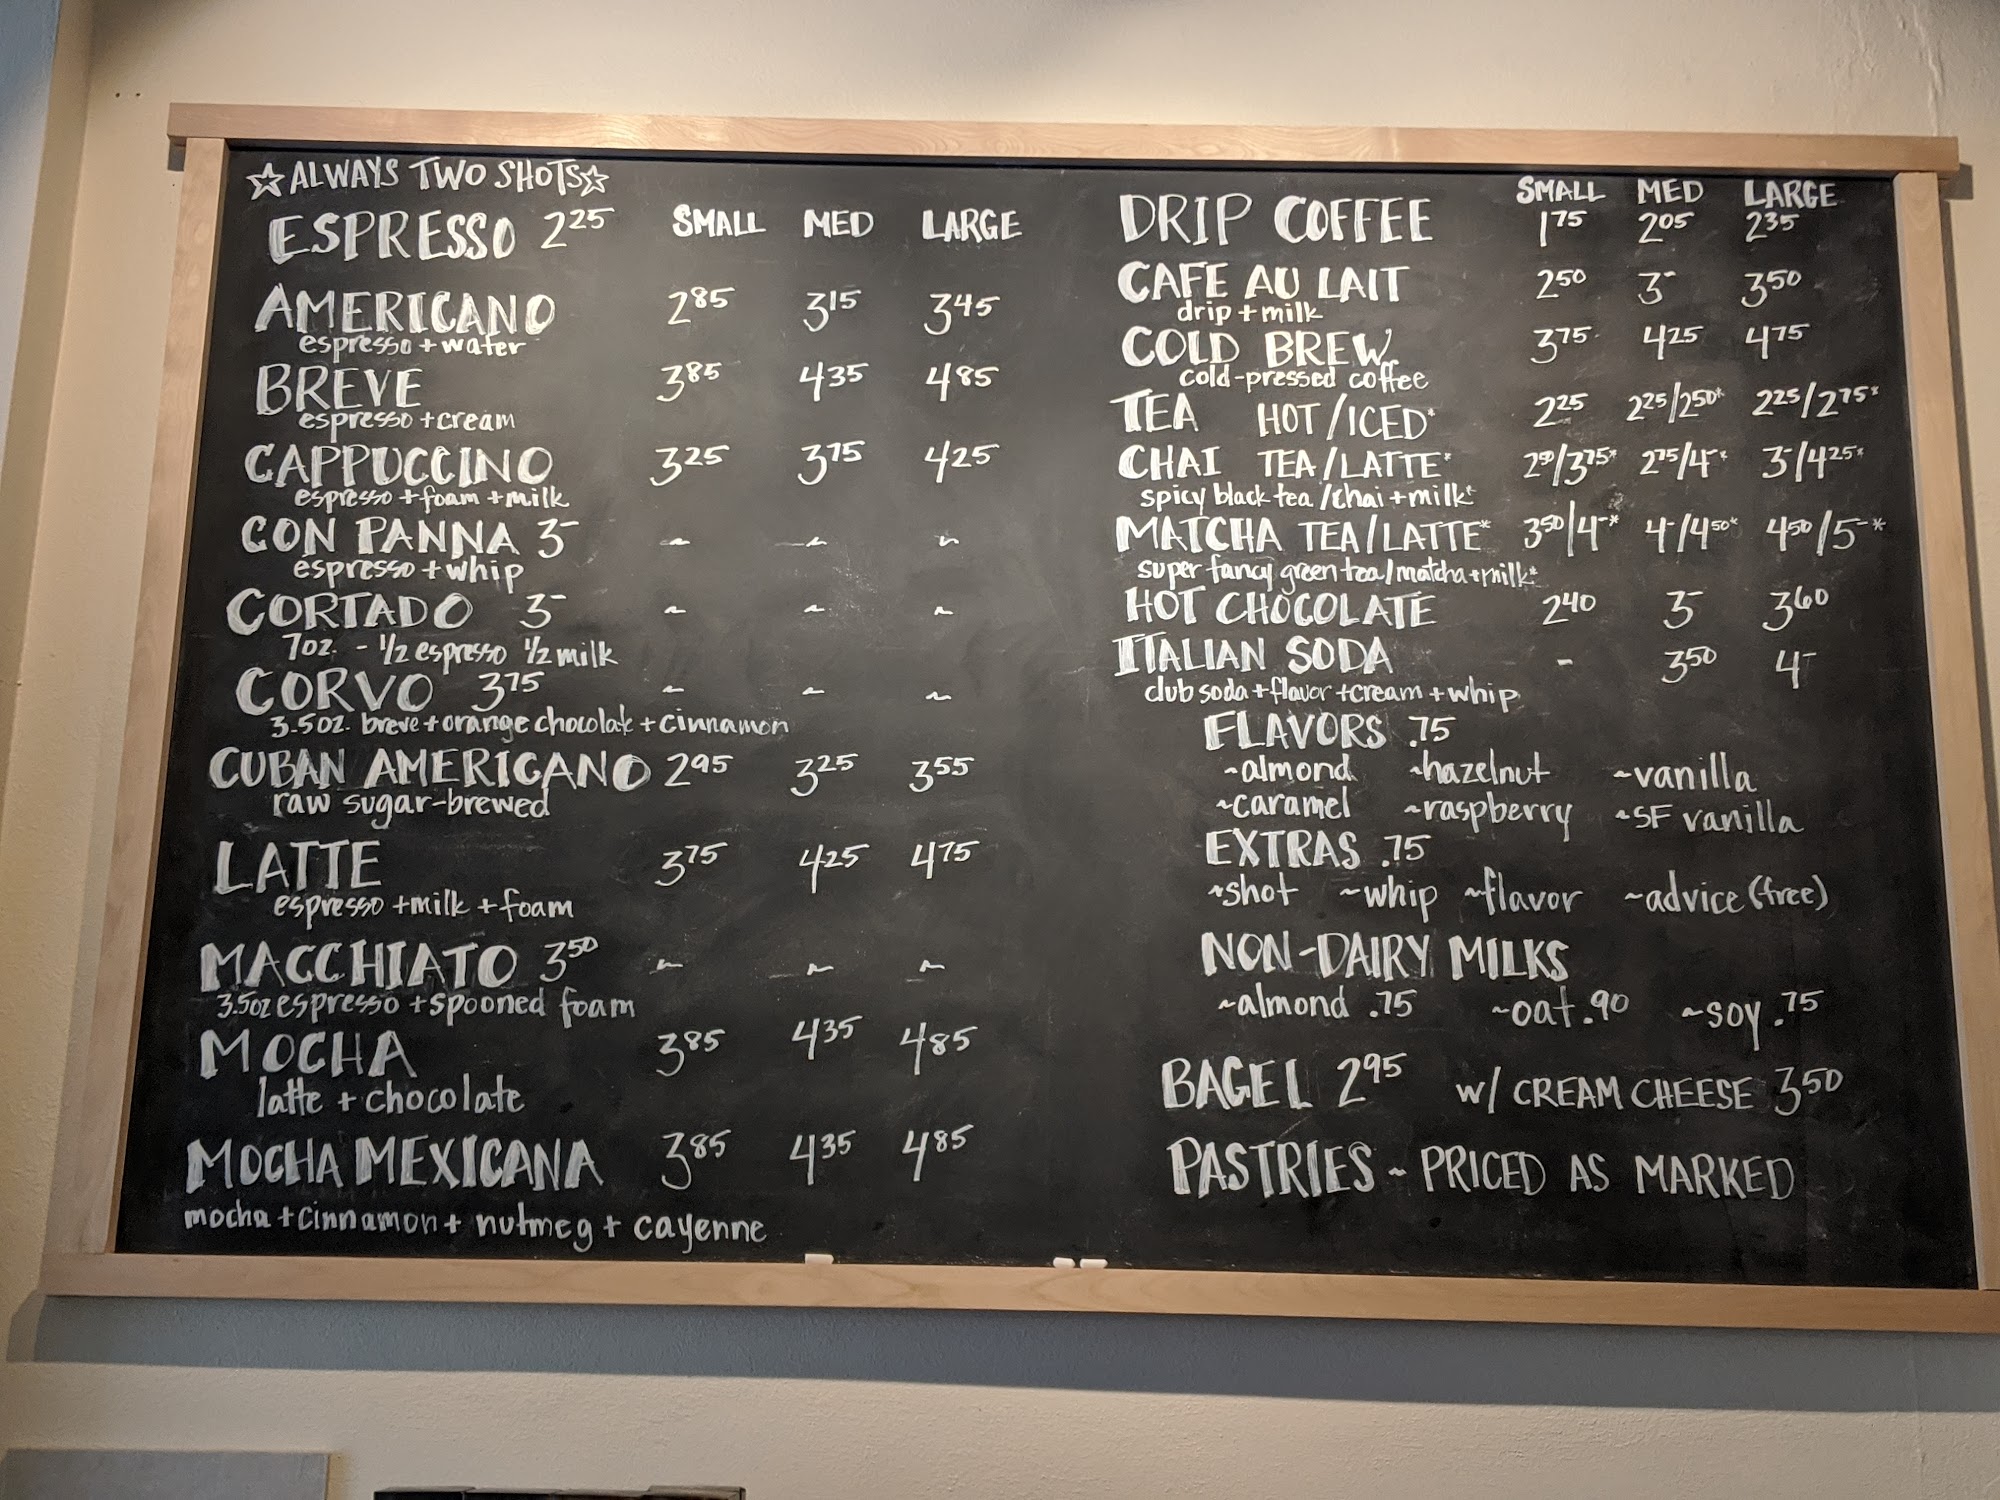 ☆ALWAYS TWO SHOTS☆
ESPRESSO 2.25 SMALL MED LARGE
AMERICANO 2.85 3.15 3.45
espresso + water
BREVE 3.85 4.35 4.85
espresso + cream
CAPPUCCINO 3.25 3.75 4.25
espresso + foam + milk
CON PANNA 3- ~ ~ ~
espresso + whip
CORTADO 3- ~ ~ ~
7oz. - 1/2 espresso 1/2 milk
CORVO 3.75 ~ ~ ~
3.5oz. breve + orange chocolate + cinnamon
CUBAN AMERICANO 2.95 3.25 3.55
raw sugar-brewed
LATTE 3.75 4.25 4.75
espresso + milk + foam
MACCHIATO 3.50 ~ ~ ~
3.5oz espresso + spooned foam
MOCHA 3.85 4.35 4.85
latte + chocolate
MOCHA MEXICANA 3.85 4.35 4.85
mocha + cinnamon + nutmeg + cayenne
SMALL MED LARGE
DRIP COFFEE 1.75 2.05 2.35
CAFE AU LAIT 2.50 3- 3.50
drip + milk
COLD BREW 3.75 4.25 4.75
cold-pressed coffee
TEA HOT/ICED* 2.25 2.25/2.50* 2.25/2.75*
CHAI TEA/LATTE* 2.50/3.75* 2.75/4-* 3-/4.25*
spicy black tea/chai + milk*
MATCHA TEA/LATTE* 3.50/4-* 4-/4.50* 4.50/5-*
super fancy green tea/matcha + milk*
HOT CHOCOLATE 2.40 3- 3.60
ITALIAN SODA - 3.50 4-
club soda + flavor + cream + whip
FLAVORS .75
~almond ~hazelnut ~vanilla
~caramel ~raspberry ~SF vanilla
EXTRAS .75
~shot ~whip ~flavor ~advice (free)
NON-DAIRY MILKS
~almond .75 ~oat .90 ~soy .75
BAGEL 2.95 w/ CREAM CHEESE 3.50
PASTRIES ~ PRICED AS MARKED